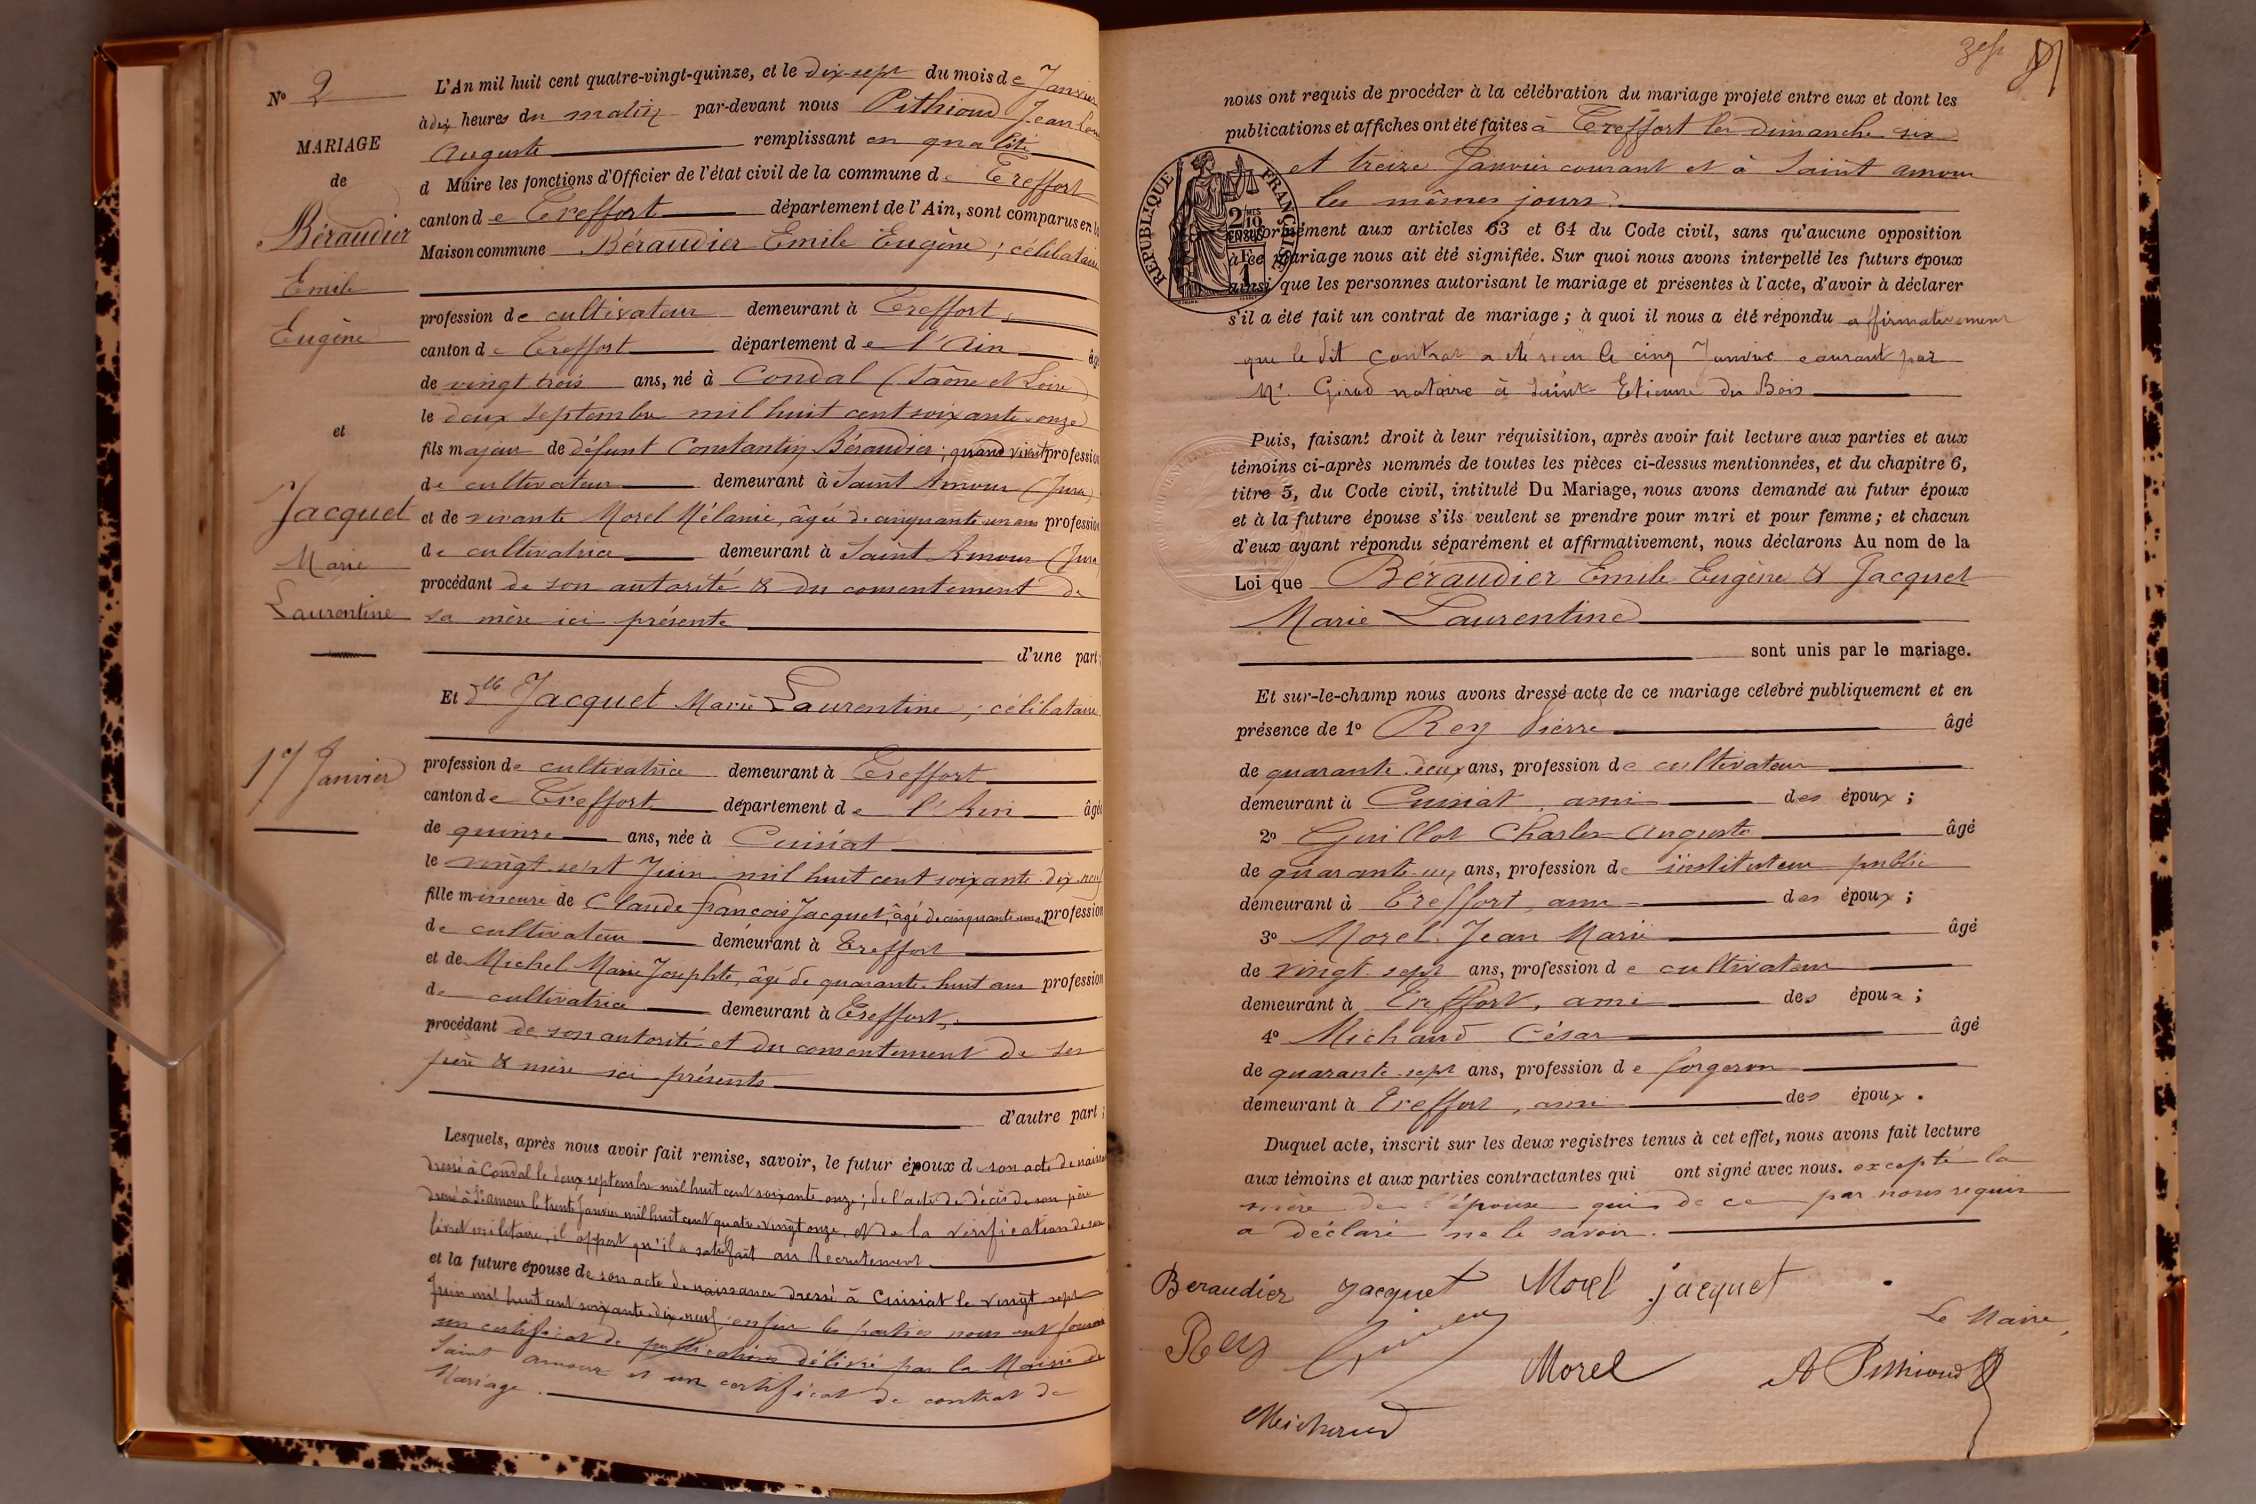 Nº 2
MARIAGE
de
Béraudier
Emile
Eugène
et
Jacquet
Marie
Laurentine
17 Janvier
L'An mil huit cent quatre-vingt-quinze, et le dix-sept du mois de Janvier
à dix heures du matin par-devant nous Pithioud Jean
Auguste remplissant en qualité
d Maire les fonctions d'Officier de l'état civil de la commune de Treffort
canton de Treffort département de l'Ain, sont comparus en la
Maison commune Béraudier Emile Eugène ; célibataire
profession de cultivateur demeurant à Treffort
canton de Treffort département de l'Ain âgé
de vingt trois ans, né à Condal (Saône et Loire)
le deux septembre mil huit cent soixante onze
fils majeur de défunt Constantin Béraudier ; quand vivait profession
de cultivateur demeurant à Saint Amour (Jura)
et de vivante Morel Mélanie, âgée de cinquante un ans profession
de cultivatrice demeurant à Saint Amour (Jura)
procédant de son autorité & du consentement de
sa mère ici présente
d'une part ;
Et Dlle Jacquet Marie Laurentine ; célibataire
profession de cultivatrice demeurant à Treffort
canton de Treffort département de l'Ain âgée
de quinze ans, née à Cuisiat
le vingt sept Juin mil huit cent soixante dix neuf
fille mineure de Claude François Jacquet, âgé de cinquante profession
de cultivateur demeurant à Treffort
et de Michel Marie Josephte, âgé de quarante huit ans profession
de cultivatrice demeurant à Treffort,
procédant de son autorité et du consentement de ses
père & mère ici présents
d'autre part ;
Lesquels, après nous avoir fait remise, savoir, le futur époux de son acte de naissance
dressé à Condal le deux septembre mil huit cent soixante onze ; de l'acte de décès de son père
dressé à St amour le trente Janvier mil huit cent quatre vingt onze, et de la vérification de son
livret militaire, il appert qu'il a satisfait au Recrutement
et la future épouse de son acte de naissance dressé à Cuisiat le vingt sept
Juin mil huit cent soixante dix neuf ; enfin les parties nous ont fourni
un certificat de publications délivré par la Mairie de
Saint amour et un certificat de contrat de
Mariage.
81
nous ont requis de procéder à la célébration du mariage projeté entre eux et dont les
publications et affiches ont été faites à Treffort les dimanche six
et treize Janvier courant et à Saint amour
les mêmes jours.
RÉPUBLIQUE FRANÇAISE
2/10 EN SUS
1 F
conformément aux articles 63 et 64 du Code civil, sans qu'aucune opposition
à ce mariage nous ait été signifiée. Sur quoi nous avons interpellé les futurs époux
ainsi que les personnes autorisant le mariage et présentes à l'acte, d'avoir à déclarer
s'il a été fait un contrat de mariage ; à quoi il nous a été répondu affirmativement
que le dit contrat a été reçu le cinq Janvier courant par
Me Girod notaire à Saint Etienne du Bois
Puis, faisant droit à leur réquisition, après avoir fait lecture aux parties et aux
témoins ci-après nommés de toutes les pièces ci-dessus mentionnées, et du chapitre 6,
titre 5, du Code civil, intitulé Du Mariage, nous avons demandé au futur époux
et à la future épouse s'ils veulent se prendre pour mari et pour femme ; et chacun
d'eux ayant répondu séparément et affirmativement, nous déclarons Au nom de la
Loi que Béraudier Emile Eugène & Jacquet
Marie Laurentine
sont unis par le mariage.
Et sur-le-champ nous avons dressé acte de ce mariage célébré publiquement et en
présence de 1º Rey Pierre âgé
de quarante deux ans, profession de cultivateur
demeurant à Cuisiat, ami des époux ;
2º Guillot Charles Auguste âgé
de quarante un ans, profession de instituteur public
demeurant à Treffort, ami des époux ;
3º Morel Jean Marie âgé
de vingt sept ans, profession de cultivateur
demeurant à Treffort, ami des époux ;
4º Michaud César âgé
de quarante sept ans, profession de forgeron
demeurant à Treffort, ami des époux.
Duquel acte, inscrit sur les deux registres tenus à cet effet, nous avons fait lecture
aux témoins et aux parties contractantes qui ont signé avec nous. excepté la
mère de l'épouse qui de ce par nous requis
a déclaré ne le savoir.
Beraudier Jacquet Morel jacquet
Le Maire,
Rey Morel A Pithioud
Michaud